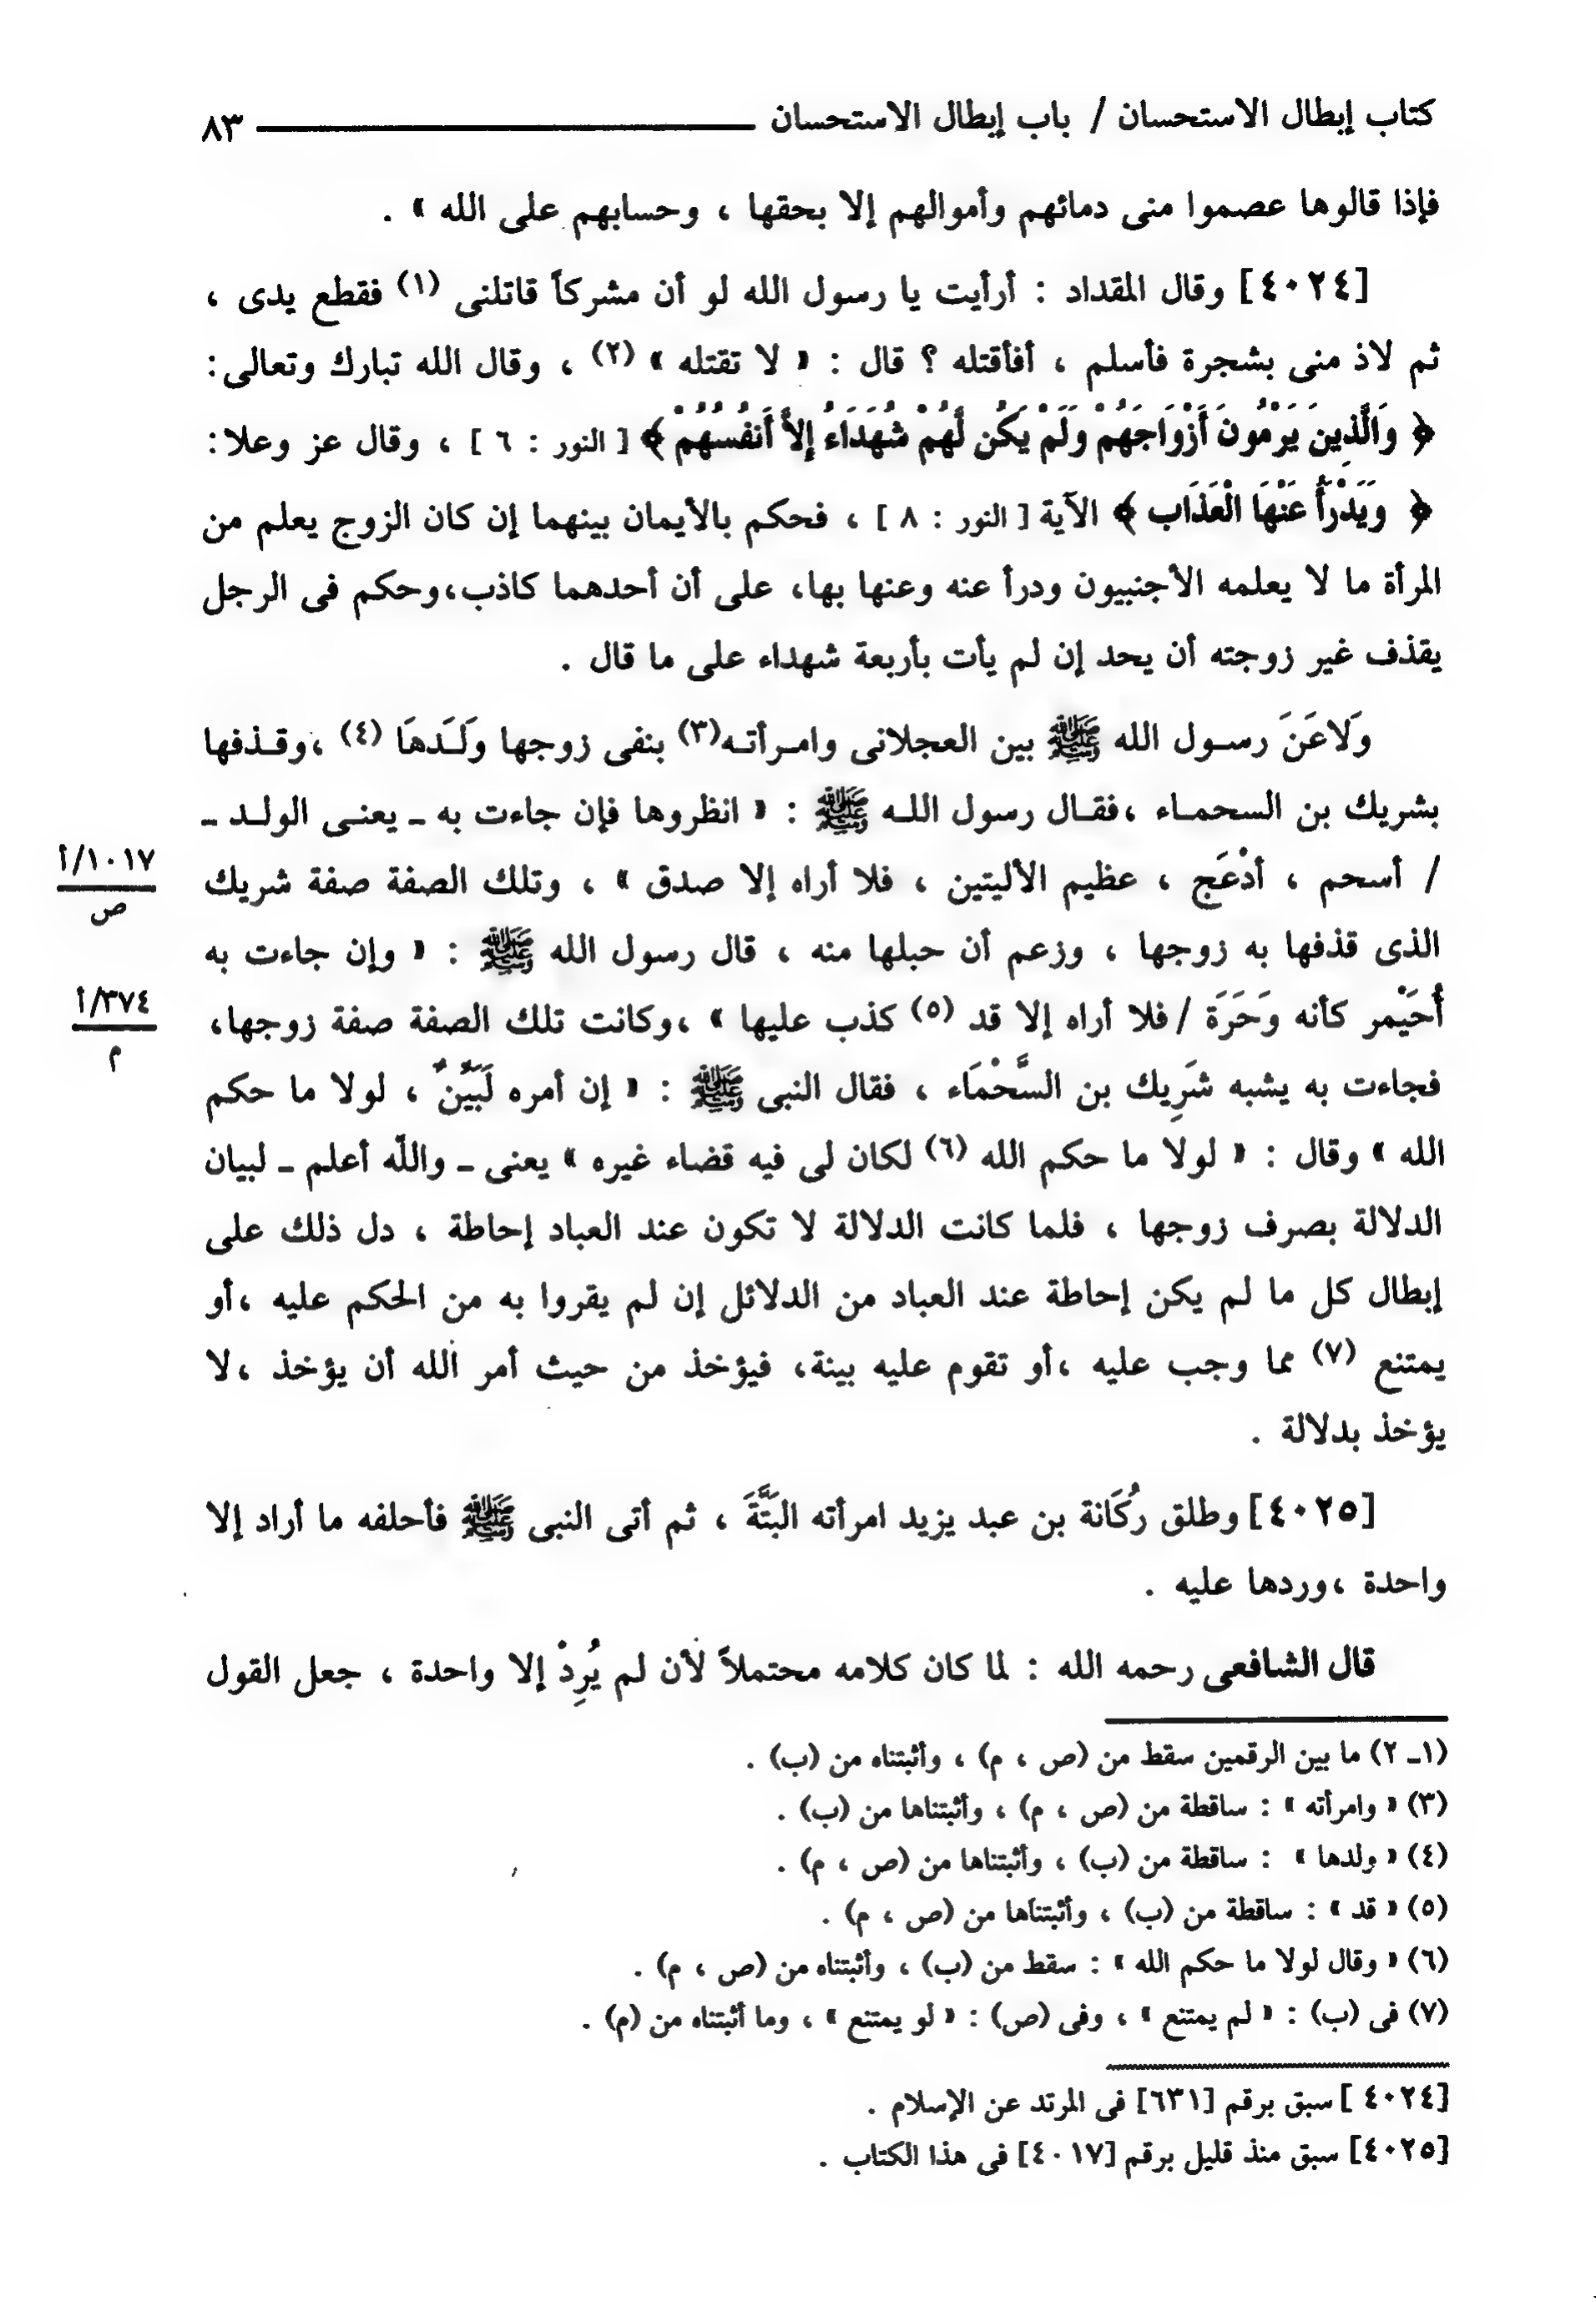 كتاب إبطال الاستحسان / باب إبطال الاستحسان ٨٣
فإذا قالوها عصموا منى دمائهم وأموالهم إلا بحقها ، وحسابهم على الله » .
[٤٠٢٤] وقال المقداد : أرأيت يا رسول الله لو أن مشركاً قاتلنى (١) فقطع يدى ،
ثم لاذ منى بشجرة فأسلم ، أفأقتله ؟ قال : « لا تقتله » (٢) ، وقال الله تبارك وتعالى:
﴿ وَالَّذِينَ يَرْمُونَ أَزْوَاجَهُمْ وَلَمْ يَكُن لَّهُمْ شُهَدَاءُ إِلاَّ أَنفُسُهُمْ ﴾ [ النور : ٦ ] ، وقال عز وعلا:
﴿ وَيَدْرَأُ عَنْهَا الْعَذَابَ ﴾ الآية [ النور : ٨ ] ، فحكم بالأيمان بينهما إن كان الزوج يعلم من
المرأة ما لا يعلمه الأجنبيون ودرأ عنه وعنها بها، على أن أحدهما كاذب،وحكم فى الرجل
يقذف غير زوجته أن يحد إن لم يأت بأربعة شهداء على ما قال .
وَلَاعَنَ رسول الله ﷺ بين العجلانى وامرأته(٣) بنفى زوجها وَلَدهَا (٤) ،وقذفها
بشريك بن السحماء ،فقال رسول الله ﷺ : « انظروها فإن جاءت به ـ يعنى الولد ـ
/ أسحم ، أدْعَج ، عظيم الأليتين ، فلا أراه إلا صدق » ، وتلك الصفة صفة شريك
١٠١٧/أ
ص
الذى قذفها به زوجها ، وزعم أن حبلها منه ، قال رسول الله ﷺ : « وإن جاءت به
أُحَيْمر كأنه وَحَرَة /فلا أراه إلا قد (٥) كذب عليها » ،وكانت تلك الصفة صفة زوجها،
٣٧٤/أ
م
فجاءت به يشبه شَرِيك بن السَّحْمَاء ، فقال النبى ﷺ : « إن أمره لَبَيِّنٌ ، لولا ما حكم
الله » وقال : « لولا ما حكم الله (٦) لكان لى فيه قضاء غيره » يعنى ـ واللّه أعلم ـ لبيان
الدلالة بصرف زوجها ، فلما كانت الدلالة لا تكون عند العباد إحاطة ، دل ذلك على
إبطال كل ما لم يكن إحاطة عند العباد من الدلائل إن لم يقروا به من الحكم عليه ،أو
يمتنع (٧) مما وجب عليه ،أو تقوم عليه بينة، فيؤخذ من حيث أمر الله أن يؤخذ ،لا
يؤخذ بدلالة .
[٤٠٢٥] وطلق رُكَانة بن عبد يزيد امرأته البَتَّةَ ، ثم أتى النبى ﷺ فأحلفه ما أراد إلا
واحدة ،وردها عليه .
قال الشافعى رحمه الله : لما كان كلامه محتملاً لأن لم يُرِدْ إلا واحدة ، جعل القول
(١ـ ٢) ما بين الرقمين سقط من (ص ، م) ، وأثبتناه من (ب) .
(٣) « وامرأته » : ساقطة من (ص ، م) ، وأثبتناها من (ب) .
(٤) « ولدها » : ساقطة من (ب) ، وأثبتناها من (ص ، م) .
(٥) « قد » : ساقطة من (ب) ، وأثبتناها من (ص ، م) .
(٦) « وقال لولا ما حكم الله » : سقط من (ب) ، وأثبتناه من (ص ، م) .
(٧) فى (ب) : « لم يمتنع » ، وفى (ص) : « لو يمتنع » ، وما أثبتناه من (م) .
[٤٠٢٤ ] سبق برقم [٦٣١] فى المرتد عن الإسلام .
[٤٠٢٥] سبق منذ قليل برقم [٤٠١٧] فى هذا الكتاب .